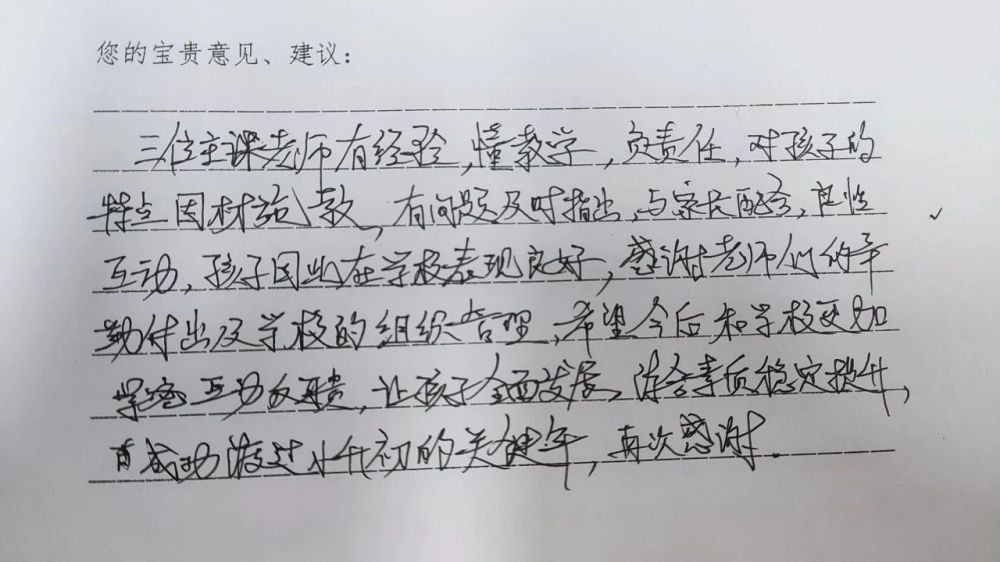 您的宝贵意见、建议：
三位主课老师有经验,懂教学,负责任,对孩子的
特点因材施教,有问题及时指出,与家长配合,良性
互动,孩子因此在学校表现良好,感谢老师们的辛
勤付出及学校的组织管理,希望今后和学校更加
紧密互动反馈,让孩子全面发展、综合素质稳定提升,
成功渡过小升初的关键年,再次感谢.